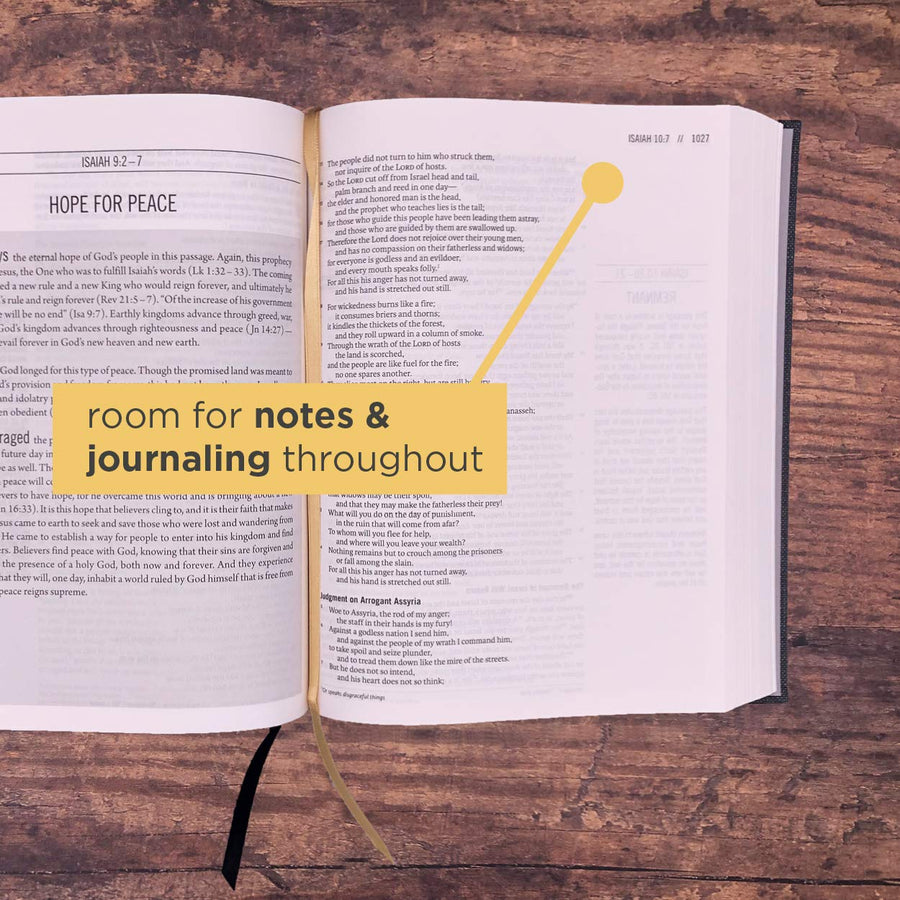 ISAIAH 9:2–7
HOPE FOR PEACE
the eternal hope of God's people in this passage. Again, this prophecy
esus, the One who was to fulfill Isaiah's words (Lk 1:32–33). The coming
ed a new rule and a new King who would reign forever, and ultimately he
's rule and reign forever (Rev 21:5–7). "Of the increase of his government
e will be no end" (Isa 9:7). Earthly kingdoms advance through greed, war,
God's kingdom advances through righteousness and peace (Jn 14:27)—
evail forever in God's new heaven and new earth.
God longed for this type of peace. Though the promised land was meant to
d's provision
and idolatry
en obedient (
raged the p
future day in
e as well. Th
peace will c
vers to have hope, for he overcame this world and is bringing about a
n 16:33). It is this hope that believers cling to, and it is their faith that makes
sus came to earth to seek and save those who were lost and wandering from
He came to establish a way for people to enter into his kingdom and find
rs. Believers find peace with God, knowing that their sins are forgiven and
the presence of a holy God, both now and forever. And they experience
hat they will, one day, inhabit a world ruled by God himself that is free from
peace reigns supreme.
ISAIAH 10:7 // 1027
The people did not turn to him who struck them,
nor inquire of the LORD of hosts.
So the LORD cut off from Israel head and tail,
palm branch and reed in one day—
the elder and honored man is the head,
and the prophet who teaches lies is the tail;
for those who guide this people have been leading them astray,
and those who are guided by them are swallowed up.
Therefore the Lord does not rejoice over their young men,
and has no compassion on their fatherless and widows;
for everyone is godless and an evildoer,
and every mouth speaks folly.
For all this his anger has not turned away,
and his hand is stretched out still.
For wickedness burns like a fire;
it consumes briers and thorns;
it kindles the thickets of the forest,
and they roll upward in a column of smoke.
Through the wrath of the LORD of hosts
the land is scorched,
and the people are like fuel for the fire;
no one spares another.
meat on the right, but are still hungry
anasseh;
room for notes &
journaling throughout
that widows may be their spoil,
and that they may make the fatherless their prey!
What will you do on the day of punishment,
in the ruin that will come from afar?
To whom will you flee for help,
and where will you leave your wealth?
Nothing remains but to crouch among the prisoners
or fall among the slain.
For all this his anger has not turned away,
and his hand is stretched out still.
Judgment on Arrogant Assyria
Woe to Assyria, the rod of my anger;
the staff in their hands is my fury!
Against a godless nation I send him,
and against the people of my wrath I command him,
to take spoil and seize plunder,
and to tread them down like the mire of the streets.
But he does not so intend,
and his heart does not so think;
Or speaks disgraceful things